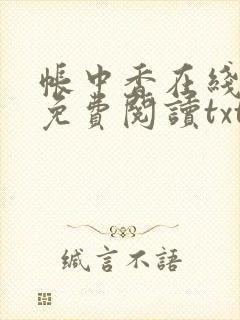 帳中香在綫
免費閱讀txt
緘言不語